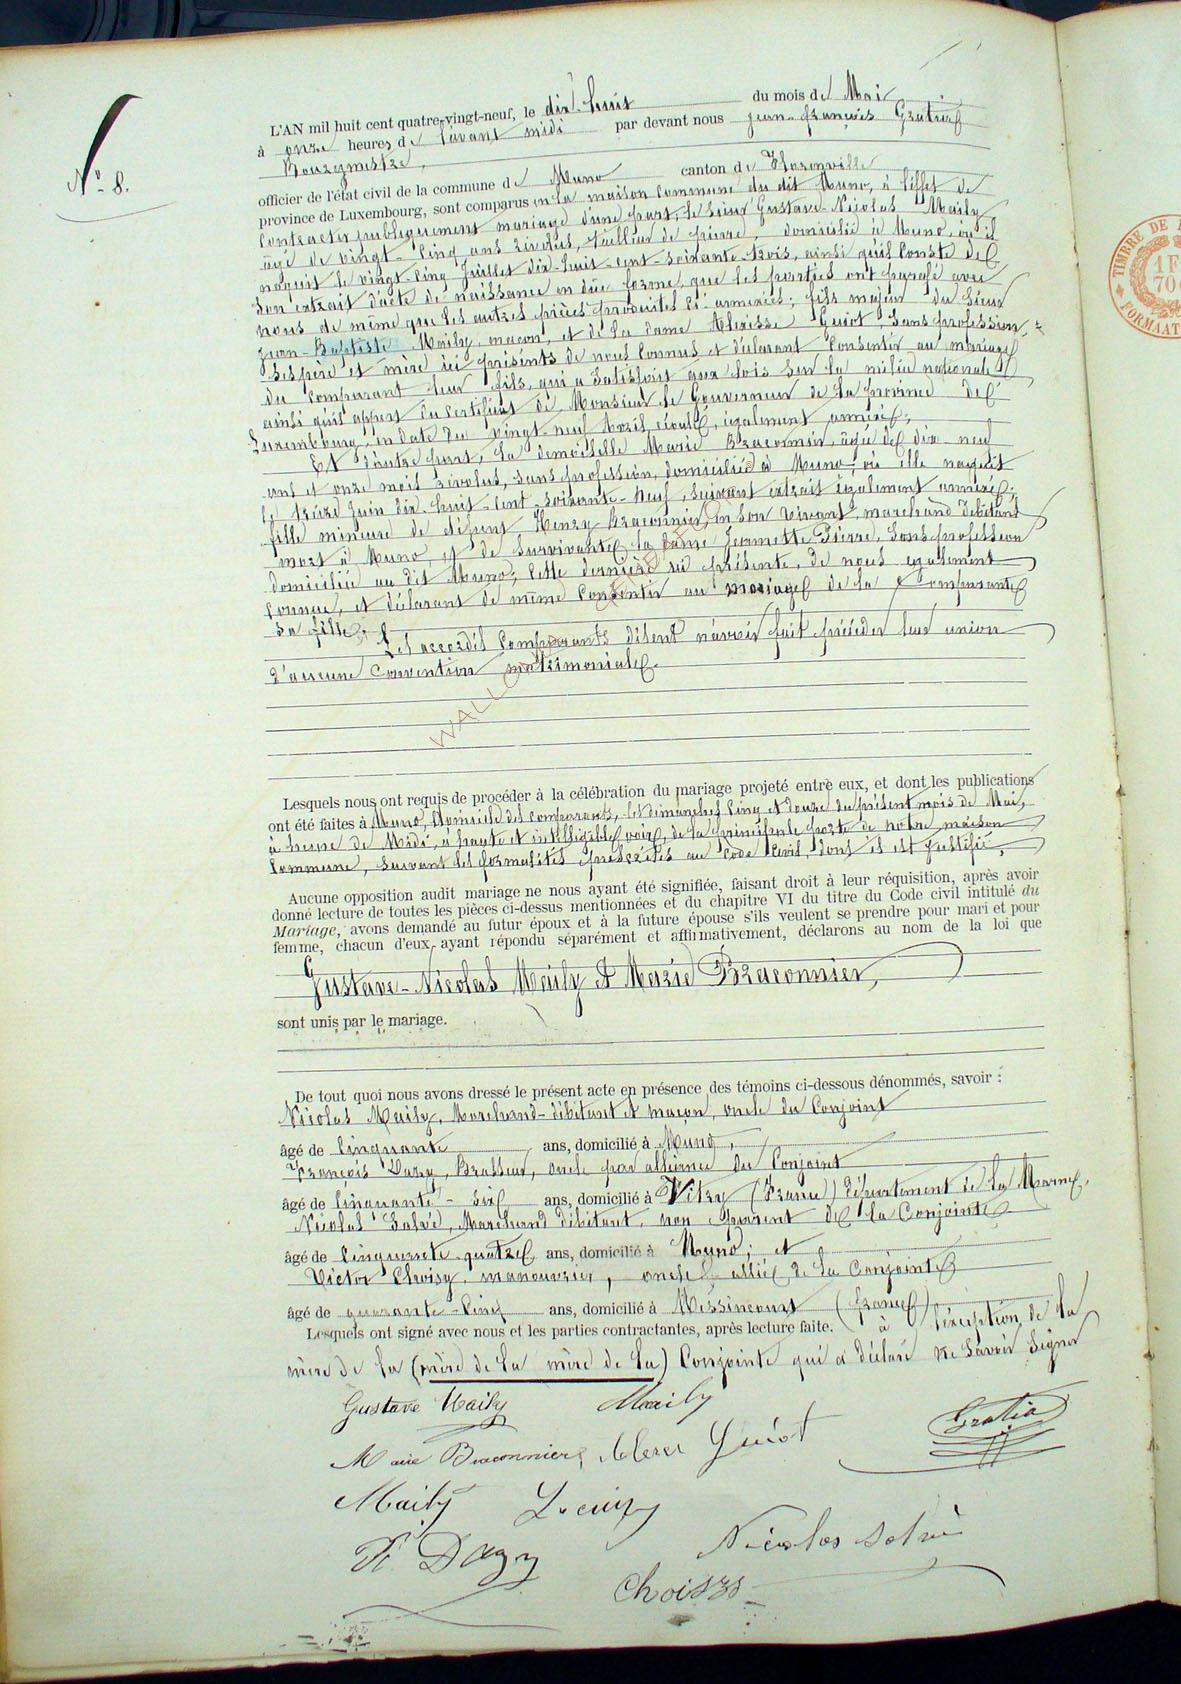 N° 8.
L'AN mil huit cent quatre-vingt-neuf, le dix-huit du mois de Mai
à onze heures de l'avant midi par devant nous Jean-François Gratia
Bourgmestre,
officier de l'état civil de la commune de Muno canton de Florenville
province de Luxembourg, sont comparus en la maison commune du dit Muno, à l'effet de
contracter publiquement mariage d'une part, le sieur Gustave-Nicolas Maily
âgé de vingt-cinq ans révolus, tailleur de pierre, domicilié à Muno, où il
naquit le vingt-cinq Juillet dix-huit-cent-soixante-trois, ainsi qu'il conste de
son extrait d'acte de naissance en due forme, que les parties ont parafé avec
nous de même que les autres pièces produites et annexées; fils majeur du sieur
Jean-Baptiste Maily, maçon, et de la dame Guiot, sans profession,
ses père et mère ici présents de nous connus et déclarant consentir au mariage
du comparant leur fils, qui a satisfait aux lois sur la milice nationale
ainsi qu'il appert du certificat de Monsieur le Gouverneur de la province de
Luxembourg, en date du vingt-neuf Avril écoulé, également annexé;
Et d'autre part, la demoiselle Marie Braconnier, âgée de dix-neuf
ans et onze mois révolus, sans profession, domiciliée à Muno, où elle naquit
le treize Juin dix-huit-cent-soixante-neuf, suivant extrait également annexé;
fille mineure de défunt Henry Braconnier, en son vivant, marchand débitant
mort à Muno, et de survivante la dame Jeannette Pierre, sans profession
domiciliée au dit Muno; cette dernière ici présente, de nous également
connue, et déclarant de même consentir au mariage de la comparante
sa fille; Les accordés comparants disent n'avoir fait précéder leur union
d'aucune convention matrimoniale.
Lesquels nous ont requis de procéder à la célébration du mariage projeté entre eux, et dont les publications
ont été faites à Muno, domicile des comparants, les dimanches cinq et douze du présent mois de Mai,
à heure de Midi, à haute et intelligible voix, de la principale porte de notre maison
commune, suivant les formalités prescrites au code civil, dont il est justifié,
Aucune opposition audit mariage ne nous ayant été signifiée, faisant droit à leur réquisition, après avoir
donné lecture de toutes les pièces ci-dessus mentionnées et du chapitre VI du titre du Code civil intitulé du
Mariage, avons demandé au futur époux et à la future épouse s'ils veulent se prendre pour mari et pour
femme, chacun d'eux ayant répondu séparément et affirmativement, déclarons au nom de la loi que
Gustave-Nicolas Maily et Marie Braconnier,
sont unis par le mariage.
De tout quoi nous avons dressé le présent acte en présence des témoins ci-dessous dénommés, savoir :
Nicolas Maily, Marchand-débitant et maçon, oncle du Conjoint
âgé de cinquante ans, domicilié à Muno,
François Dazy, Brasseur, oncle par alliance du Conjoint
âgé de cinquante-six ans, domicilié à Vitry (France) département de la Marne,
Nicolas Salvé, Marchand débitant, non parent de la Conjointe
âgé de cinquante-quatre ans, domicilié à Muno; et
Victor Choisy, manouvrier, oncle allié de la Conjointe
âgé de quarante-cinq ans, domicilié à Messincourt (France)
Lesquels ont signé avec nous et les parties contractantes, après lecture faite. à l'exception de la
mère de la (mère de la mère de la) Conjointe qui a déclaré ne savoir signer
Gustave Maily Maily
Gratia
Marie Braconnier Guiot
Maily
F. Dazy
Nicolas
Choisy
TIMBRE DE
1F
70
FORMAAT